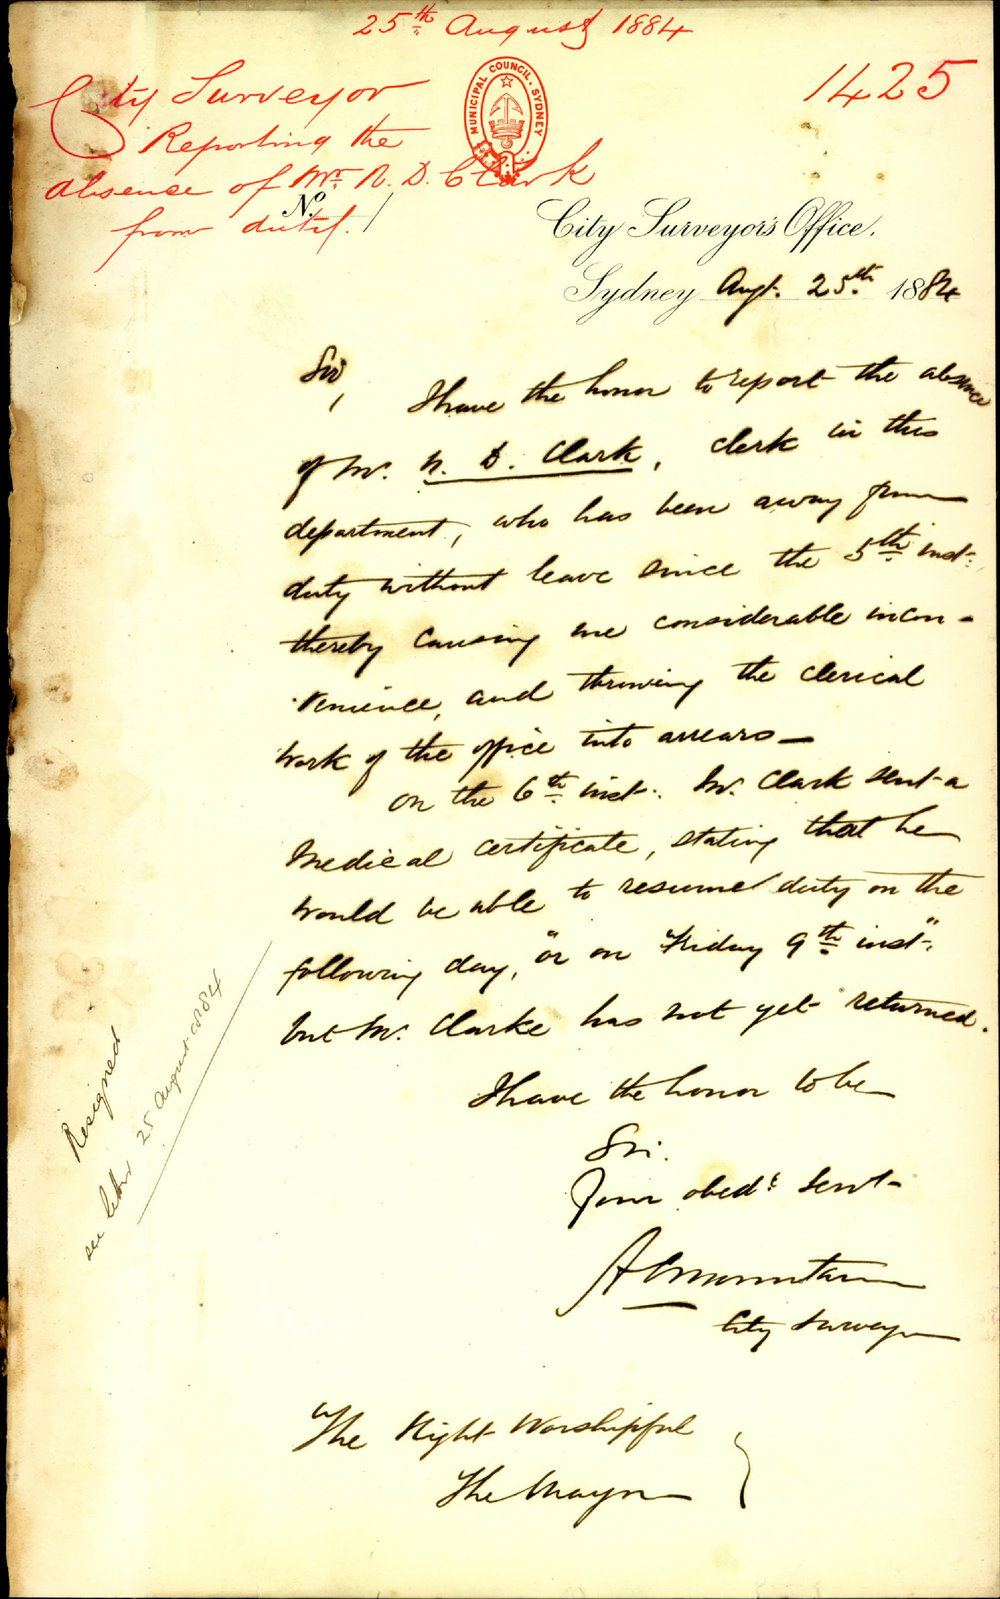 25th August 1884
1425
City Surveyor
Reporting the
absence of Mr. N. D. Clark
from duty.
MUNICIPAL COUNCIL. SYDNEY
No.
City Surveyor's Office.
Sydney Augt. 25th 1884
Sir,
I have the honor to report the absence
of Mr. N. D. Clark, clerk in this
department, who has been away from
duty without leave since the 5th inst:
thereby causing me considerable incon-
venience, and throwing the clerical
work of the office into arrears —
on the 6th inst: Mr. Clark sent a
Medical certificate, stating that he
would be able to resume duty on the
following day, "or on Friday 9th inst":
but Mr. Clarke has not yet returned.
I have the honor to be
Sir.
Your obedt servt
A C Mountain
City Surveyor
The Right Worshipful
The Mayor
Resigned
see letter 25 August 1884